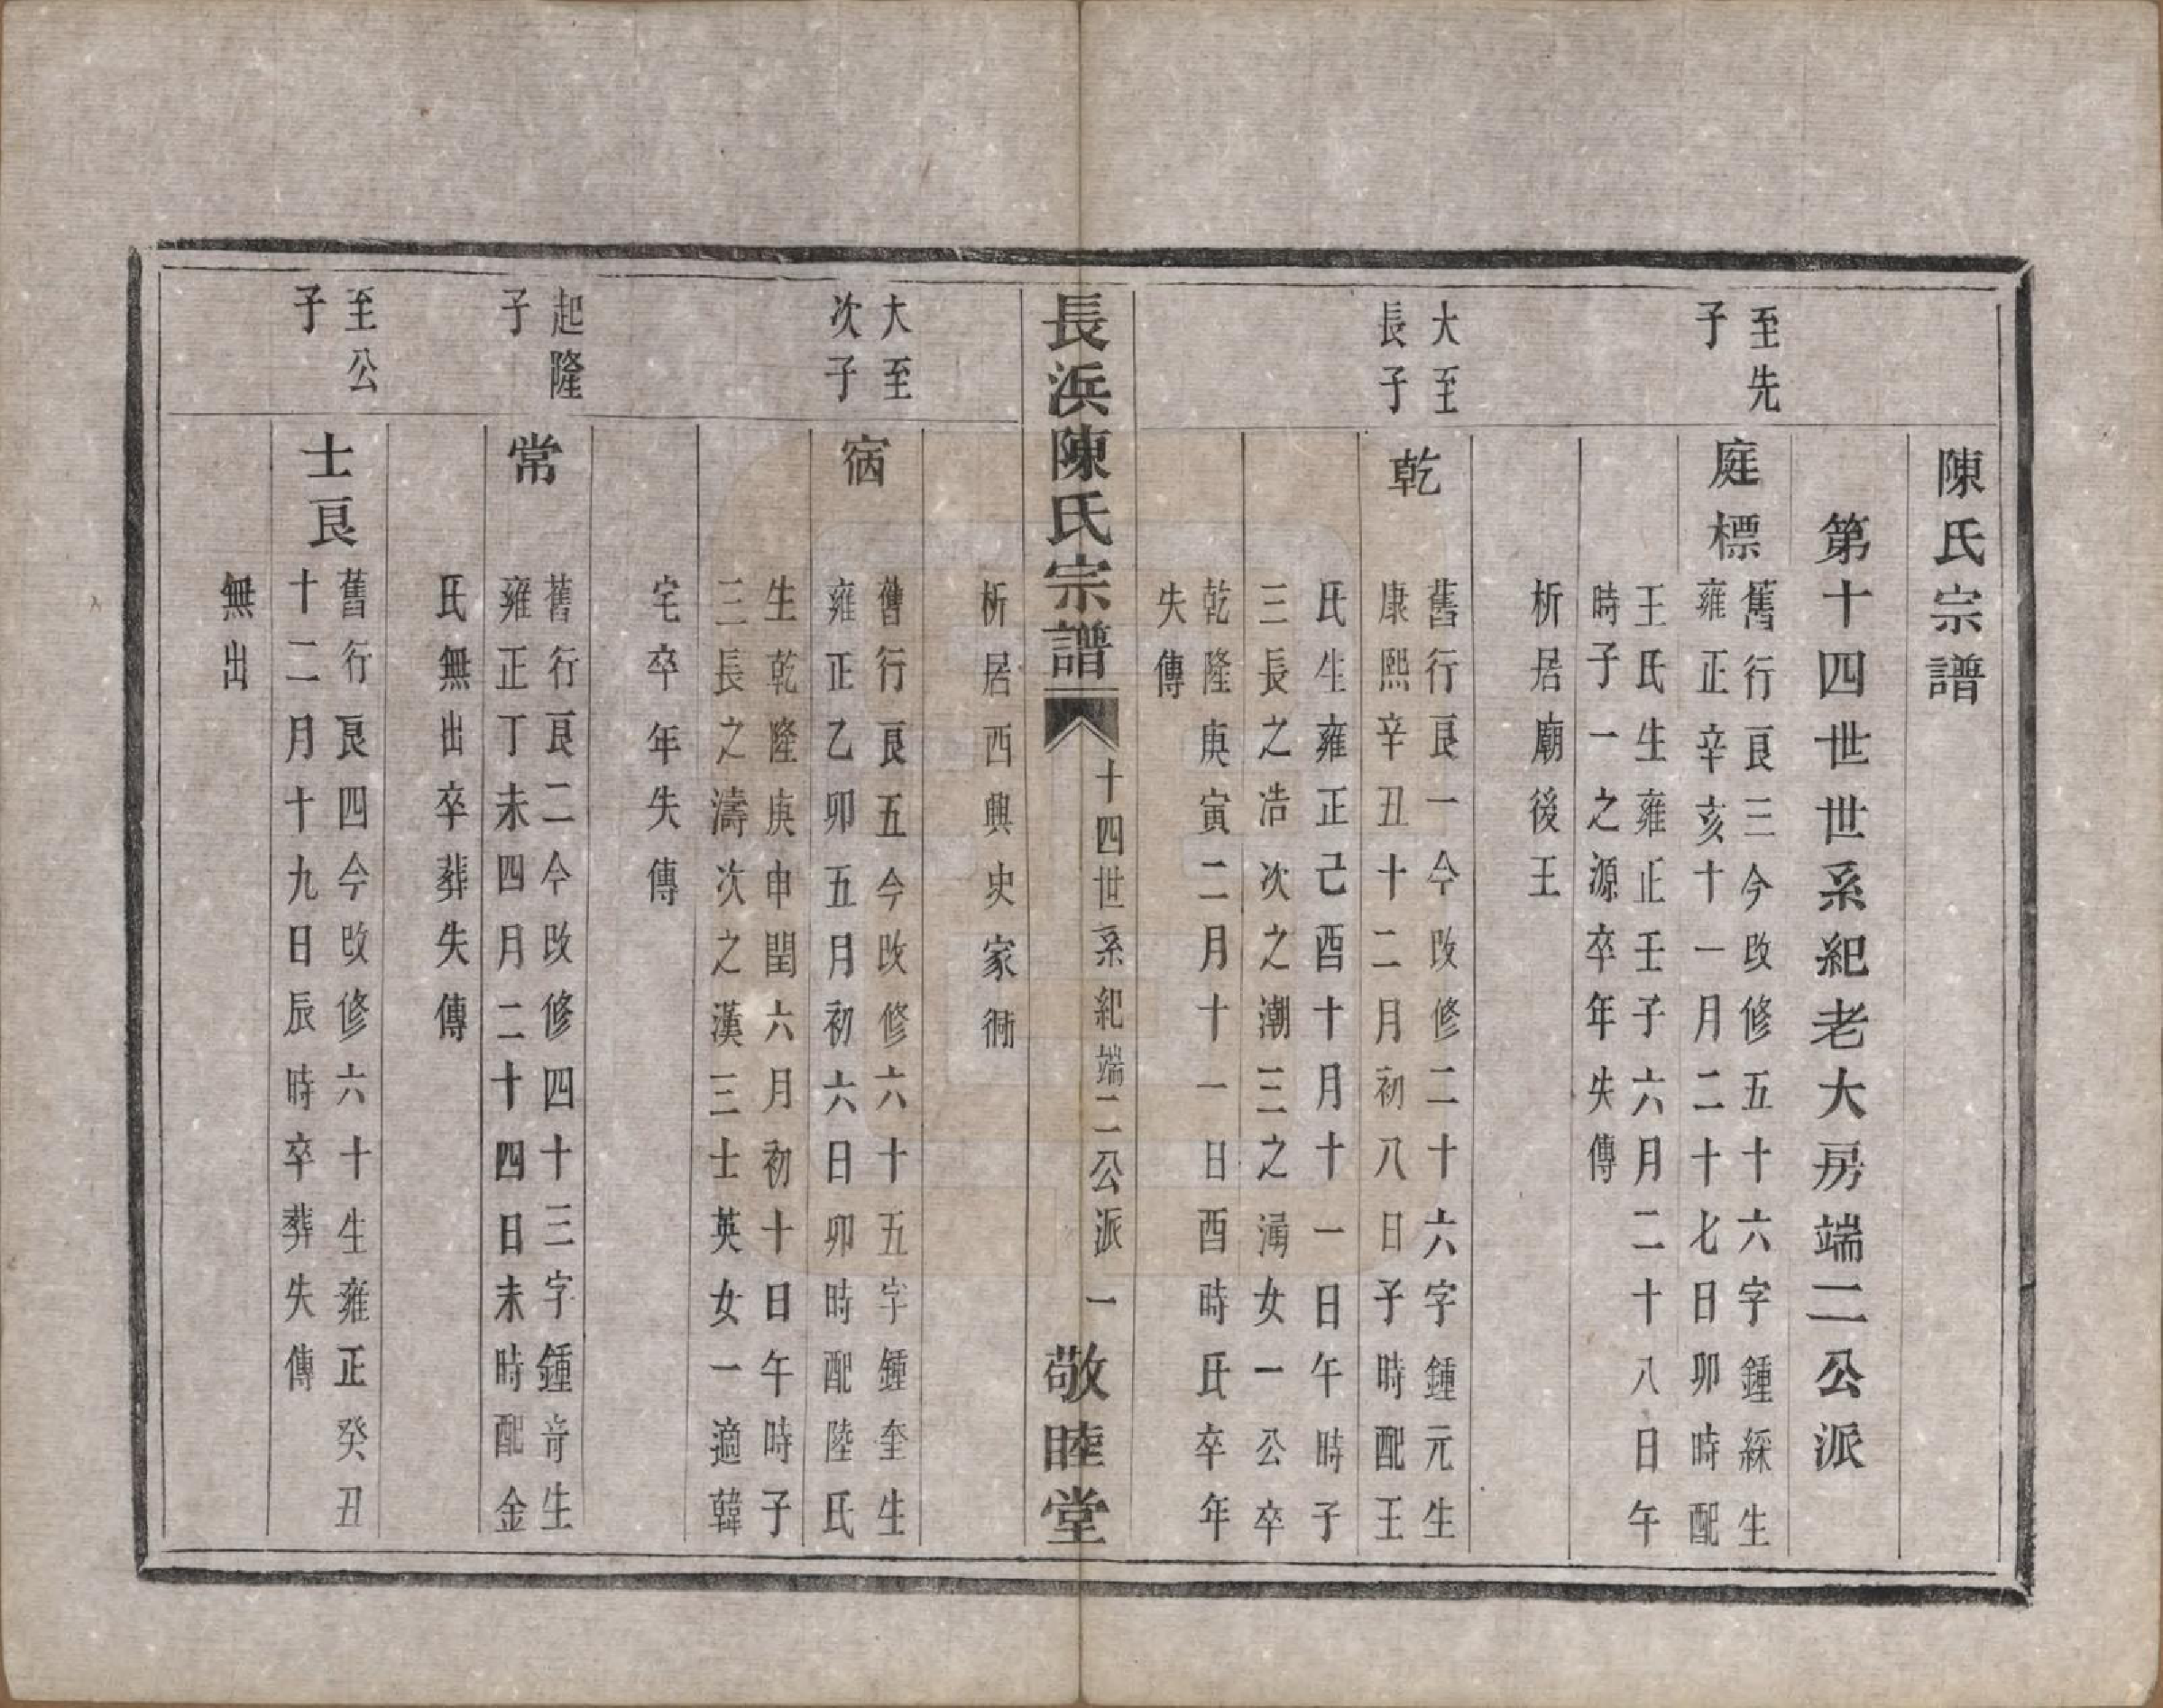 陳氏宗譜
第十四世世系紀老大房端二公派
至先
子
庭標
舊行艮三今改修五十六字鍾綵生
雍正辛亥十一月二十七日卯時配
王氏生雍正壬子六月二十八日午
時子一之源卒年失傳
析居廟後王
大至
長子
乾
舊行艮一今改修二十六字鍾元生
康熙辛丑十二月初八日子時配王
氏生雍正己酉十月十一日午時子
三長之浩次之潮三之潏女一公卒
乾隆庚寅二月十一日酉時氏卒年
失傳
長浜陳氏宗譜
十四世系紀端二公派
一
敬睦堂
析居西興史家衖
大至
次子
㝛
舊行艮五今改修六十五字鍾奎生
雍正乙卯五月初六日卯時配陸氏
生乾隆庚申閏六月初十日午時子
三長之濤次之漢三士英女一適韓
宅卒年失傳
起隆
子
常
舊行艮二今改修四十三字鍾奇生
雍正丁未四月二十四日未時配金
氏無出卒葬失傳
至公
子
士艮
舊行艮四今改修六十生雍正癸丑
十二月十九日辰時卒葬失傳
無出